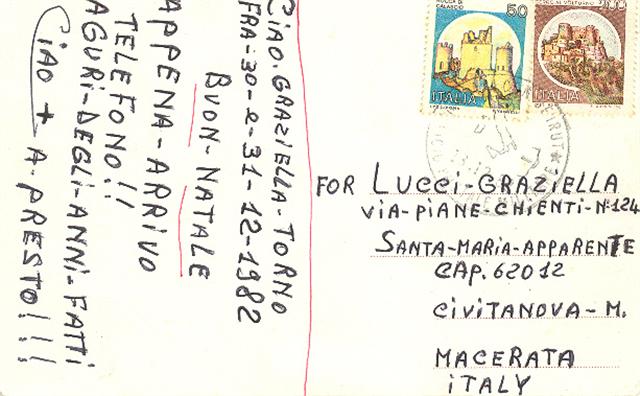 CIAO. GRAZIELLA-TORNO
FRA-30-e-31-12-1982
BUON-NATALE
APPENA-ARRIVO
TELEFONO!!
AGURI-DEGLI-ANNI-FATTI
CIAO + A-PRESTO!!!
ROCCA DI
CALASCIO
50
ITALIA
100
ITALIA
FOR LUCCI-GRAZIELLA
VIA-PIANE-CHIENTI-N:124
SANTA-MARIA-APPARENTE
CAP. 62012
CIVITANOVA-M.
MACERATA
ITALY